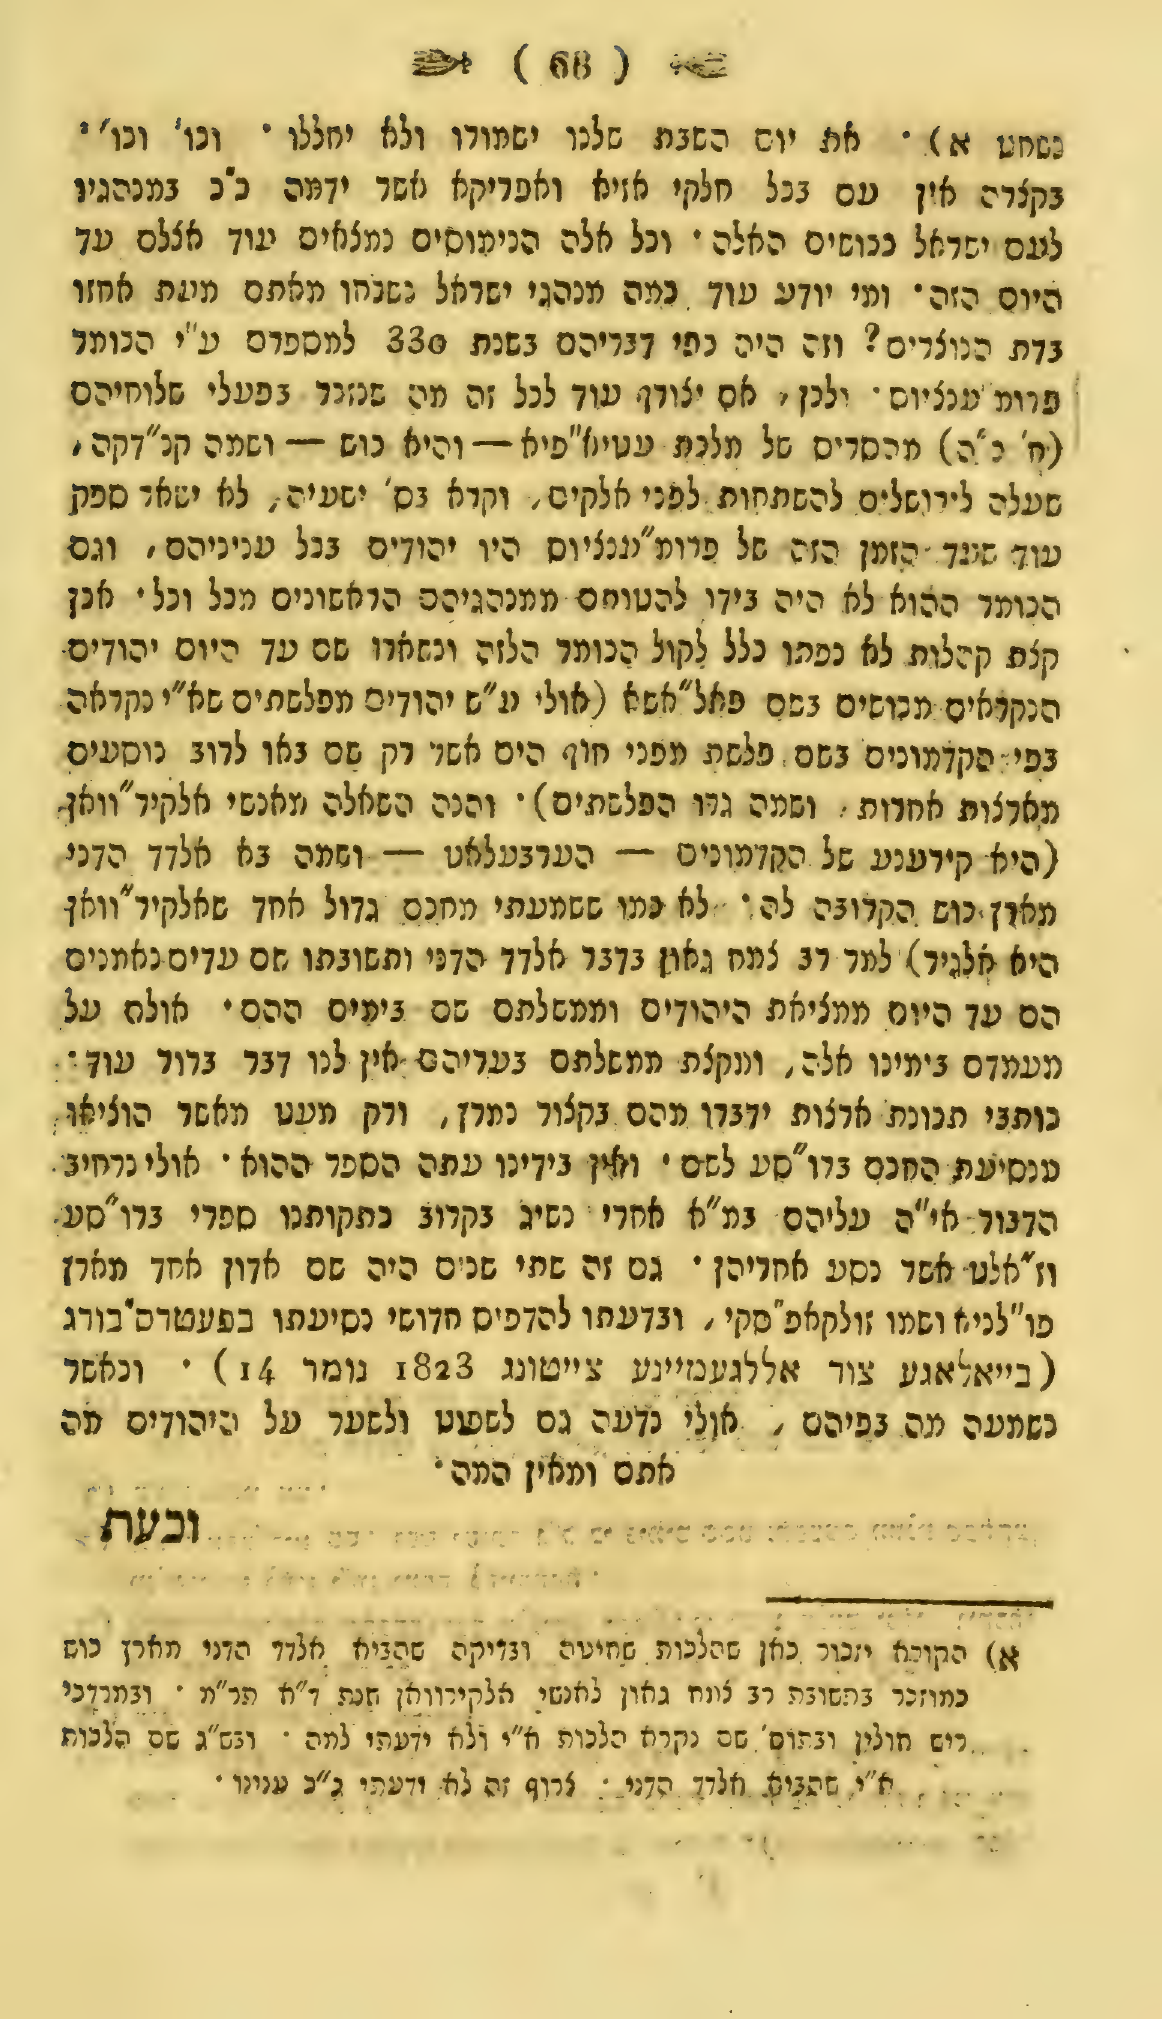 ( 68 )
נשחט א) · את יום השבת שלנו ישמורו ולא יחללו · וכו' וכו' ·
בקצרה אין עם בכל חלקי אזיא ואפריקא אשר ידמה כ"כ במנהגיו
לעם ישראל ככושים האלה · וכל אלה הנימוסים נמצאים עוד אצלם עד
היום הזה · ומי יודע עוד כמה מנהגי ישראל נשכחו מאתם מעת אחזו
בדת הנוצרים? וזה היה כפי דבריהם בשנת 330 למספרם ע"י הכומר
פרומענציוס · ולכן, אם יצורף עוד לכל זה מה שנזכר בפעלי שלוחיהם
(ח' כ"ה) מהסריס של מלכת עטיא"פיא — והיא כוש — ושמה קנ"דקה,
שעלה לירושלים להשתחות לפני אלקים, וקרא בס' ישעיה, לא ישאר ספק
עוד שעד הזמן הזה של פרומ"ענציוס היו יהודים בכל עניניהם, וגם
הכומר ההוא לא היה בידו להטותם ממנהגיהם הראשונים מכל וכל · אכן
קצת קהלות לא נפתו כלל לקול הכומר הלזה ונשארו שם עד היום יהודים
הנקראים מכושים בשם פאל"אשא (אולי ע"ש יהודים מפלשתים שא"י נקראה
בפי הקדמונים בשם פלשת מפני חוף הים אשר רק שם באו לרוב נוסעים
מארצות אחרות, ושמה גרו הפלשתים) · והנה השאלה מאנשי אלקיר"וואן
(היא קירענע של הקדמונים — הערבעלאט — ושמה בא אלדד הדני
מארץ כוש הקרובה לה · לא כמו ששמעתי מחכם גדול אחד שאלקיר"וואן
היא אלגיר) למר רב צמח גאון בדבר אלדד הדני ותשובתו שם עדים נאמנים
הם עד היום ממציאת היהודים וממשלתם שם בימים ההם · אולם על
מעמדם בימינו אלה, ומקצת ממשלתם בעריהם אין לנו דבר ברור עוד ·
כותבי תכונת ארצות ידברו מהם בקצור נמרץ, ורק מעט מאשר הוציאו
מנסיעת החכם ברו"סע לשם · ואין בידינו עתה הספר ההוא · אולי נרחיב
הדבור אי"ה עליהם במ"א אחרי נשיג בקרוב כתקותנו ספרי ברו"סע
וז"אלט אשר נסע אחריהן · גם זה שתי שנים היה שם אדון אחד מארץ
פו"לניא ושמו זולקאפ"סקי, ובדעתו להדפיס חדושי נסיעתו בפעטרס"בורג
(בייאלאגע צור אללגעמיינע צייטונג 1823 נומר 14) · וכאשר
נשמעה מה בפיהם, אולי נדעה גם לשפוט ולשער על היהודים מה
אתם ומאין המה ·
וכעת
א) הקורא יזכור כאן שהלכות שחיטה ובדיקה שהביא אלדד הדני מארץ כוש
כמוזכר בתשובת רב צמח גאון לאנשי אלקירוואן שנת ד"א תר"מ · ובמרדכי
ריש חולין ובתוס' שם נקרא הלכות א"י ולא ידעתי למה · ובש"ג שם הלכות
א"י שהביא אלדד הדני · צרוף זה לא ידעתי ג"כ ענינו ·